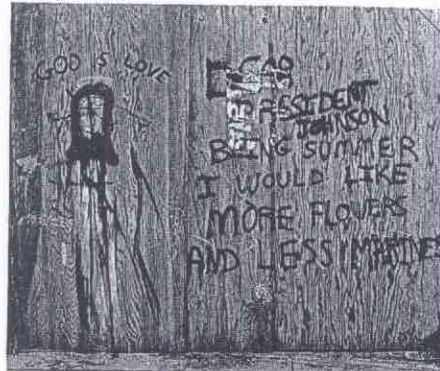 GOD IS LOVE
PRESSIDENT
JOHNSON
BEING SUMMER
I WOULD LIKE
MORE FLOWERS
AND LESS MARINES